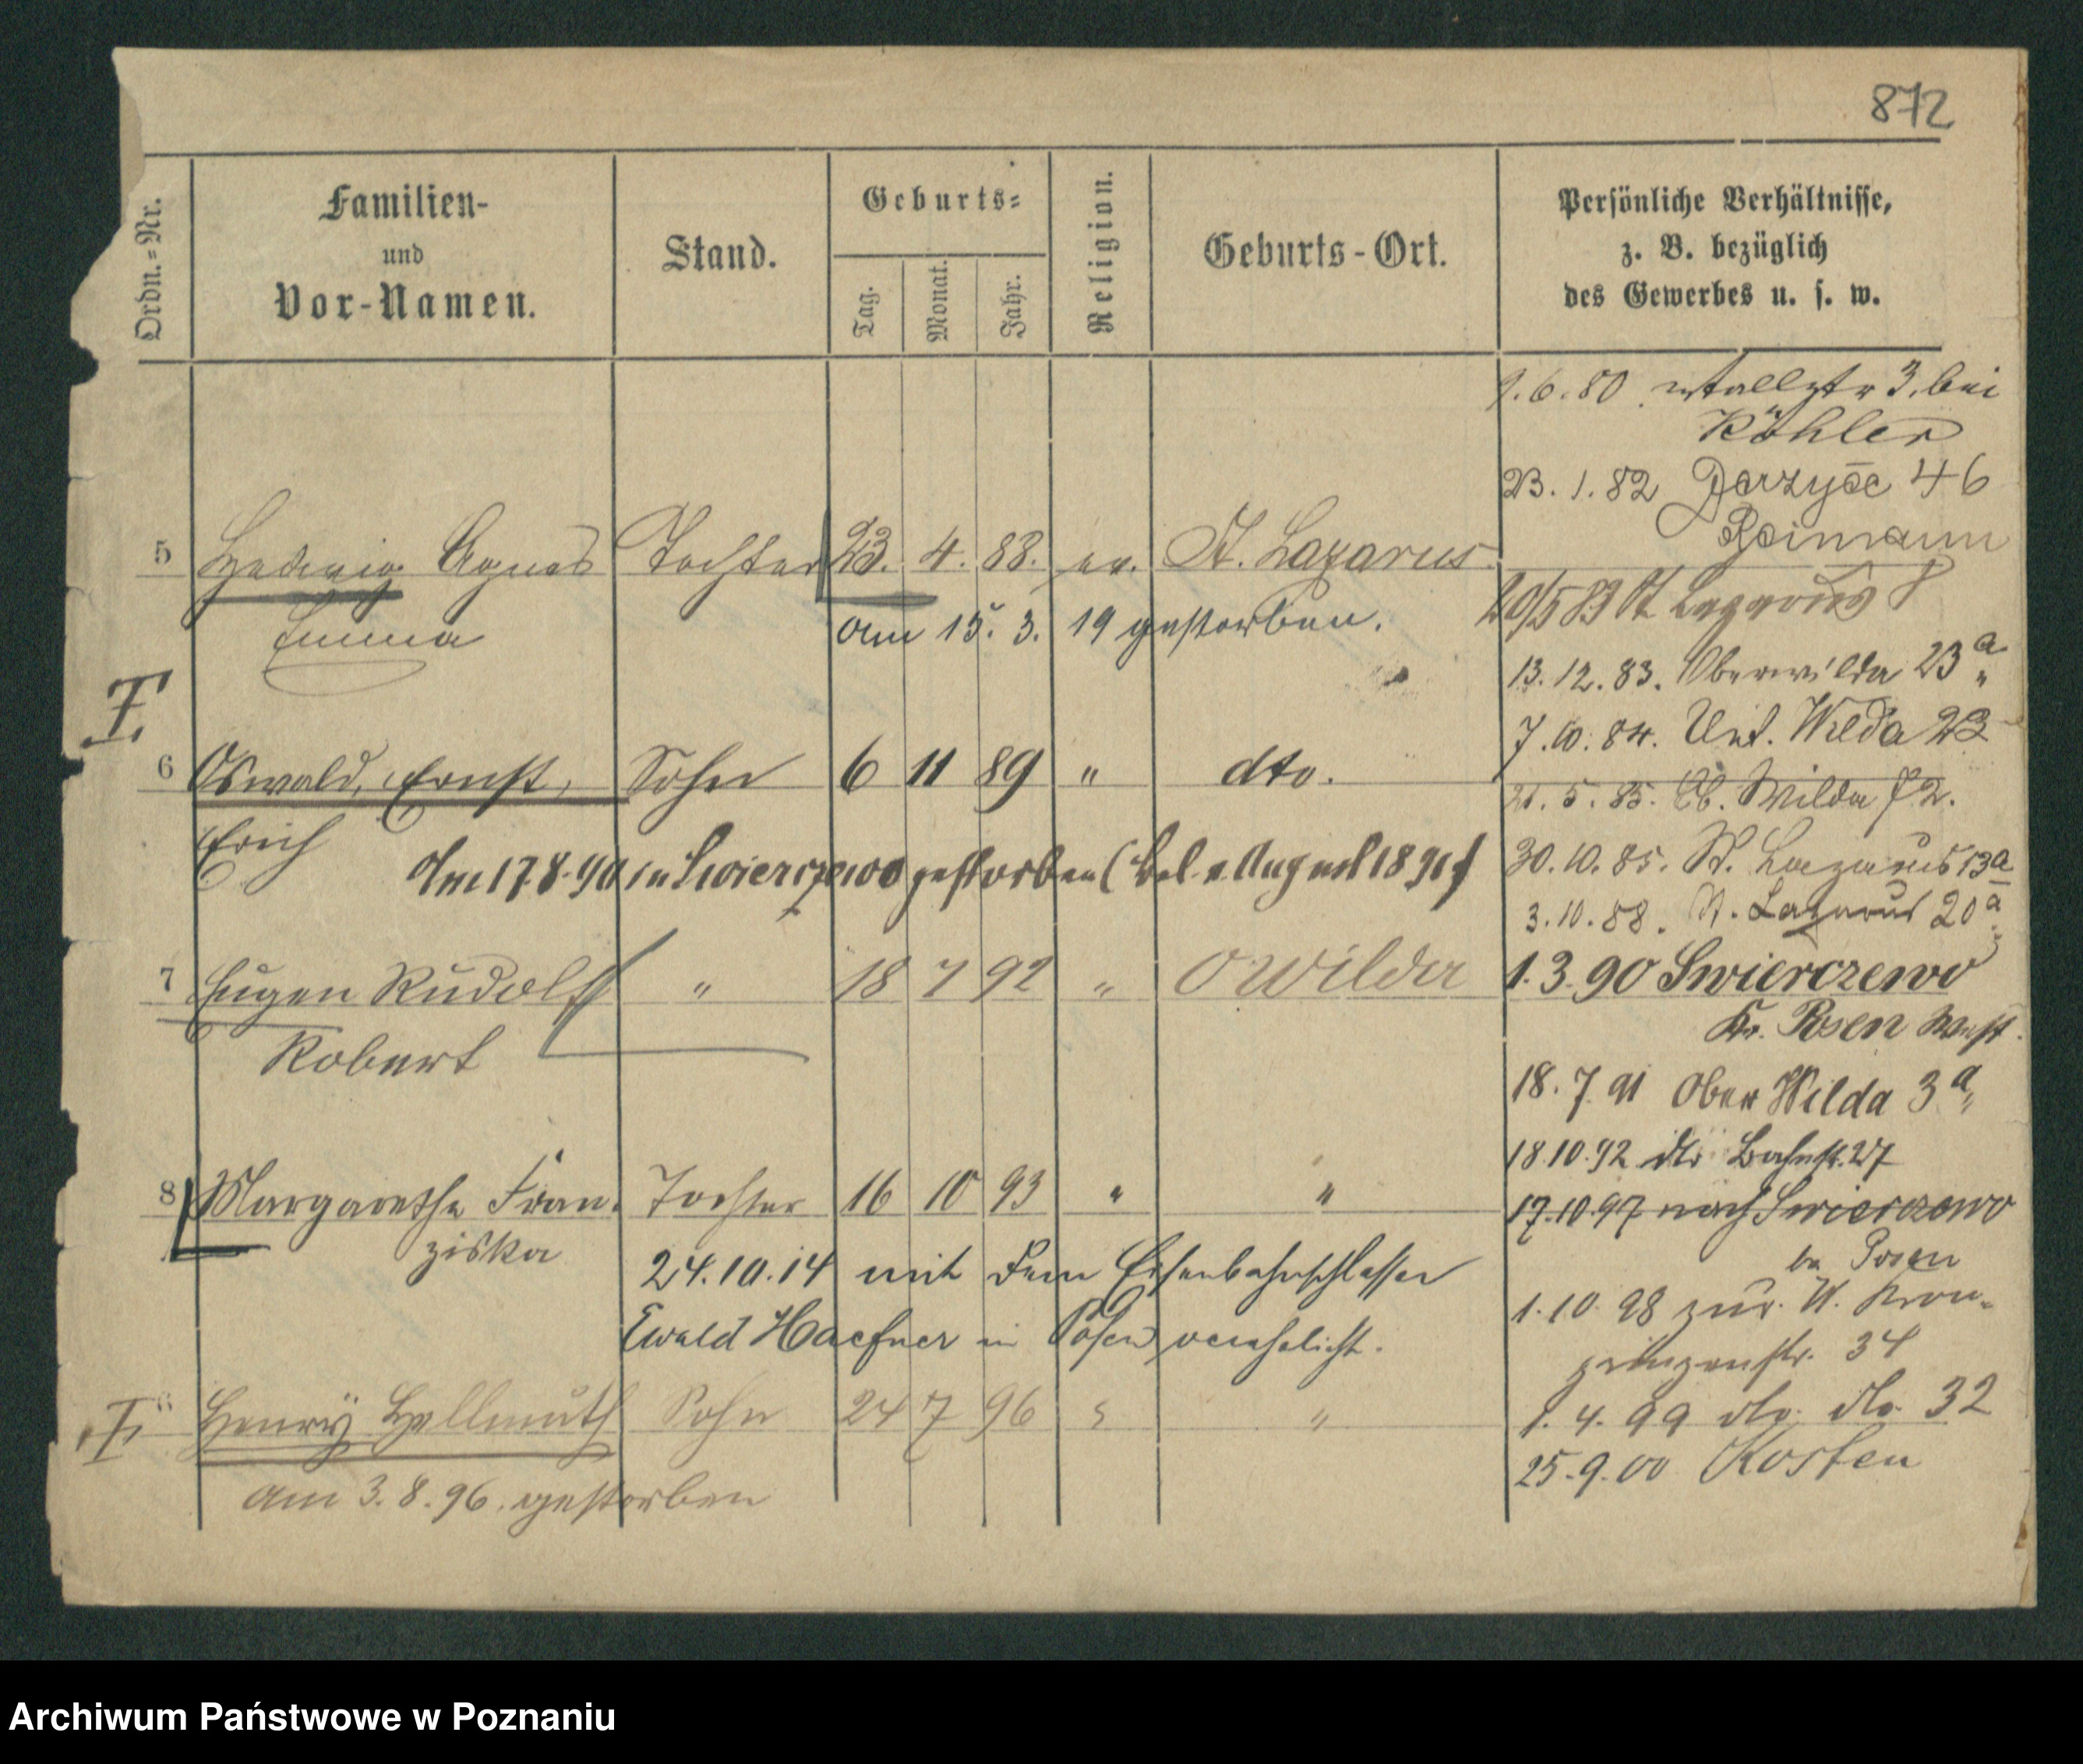 872
Ordn.-Nr.
Familien-
und
Vor-Namen.
Stand.
Geburts-
Tag.
Monat.
Jahr.
Religion.
Geburts-Ort.
Persönliche Verhältnisse,
z. B. bezüglich
des Gewerbes u. s. w.
9.6.80 3, bei
Köhler
23.1.82 46
Reimann
5 Hedwig Agnes Tochter 23. 4. 88. ev. St. Lazarus
Emma
am 15. 3. 19 gestorben.
20/5 83 St Lazarus 8
13.12.83. Oberwilda 23a
7.10.84. Unt. Wilda 23
6 Oswald, Ernst, Sohn 6 11 89 " dto.
Erich
21.5.85. Wilda 72.
Am 17.8.90 in Swierczewo gestorben (August 1890)
30.10.85. St. Lazarus 13a
3.10.88. St. Lazarus 20a
7 Eugen Rudolf " 18 7 92 " O Wilda
Robert
1.3.90 Swierczewo
Kr. Posen West.
18.7.91 Ober Wilda 3a
18.10.92 dto Bahnstr. 27
8 Margarethe Fran- Tochter 16 10 93 " "
ziska
17.10.97 nach Swierczewo
bei Posen
24.10.14 mit dem Eisenbahnschlosser
Ewald Haefner in Posen verehelicht.
1.10.98 zur. W. Kron-
prinzenstr. 34
Henry Hellmuth Sohn 24 7 96 " "
am 3.8.96. gestorben
1.4.99 dto. dto. 32
25.9.00 Kosten
Archiwum Państwowe w Poznaniu